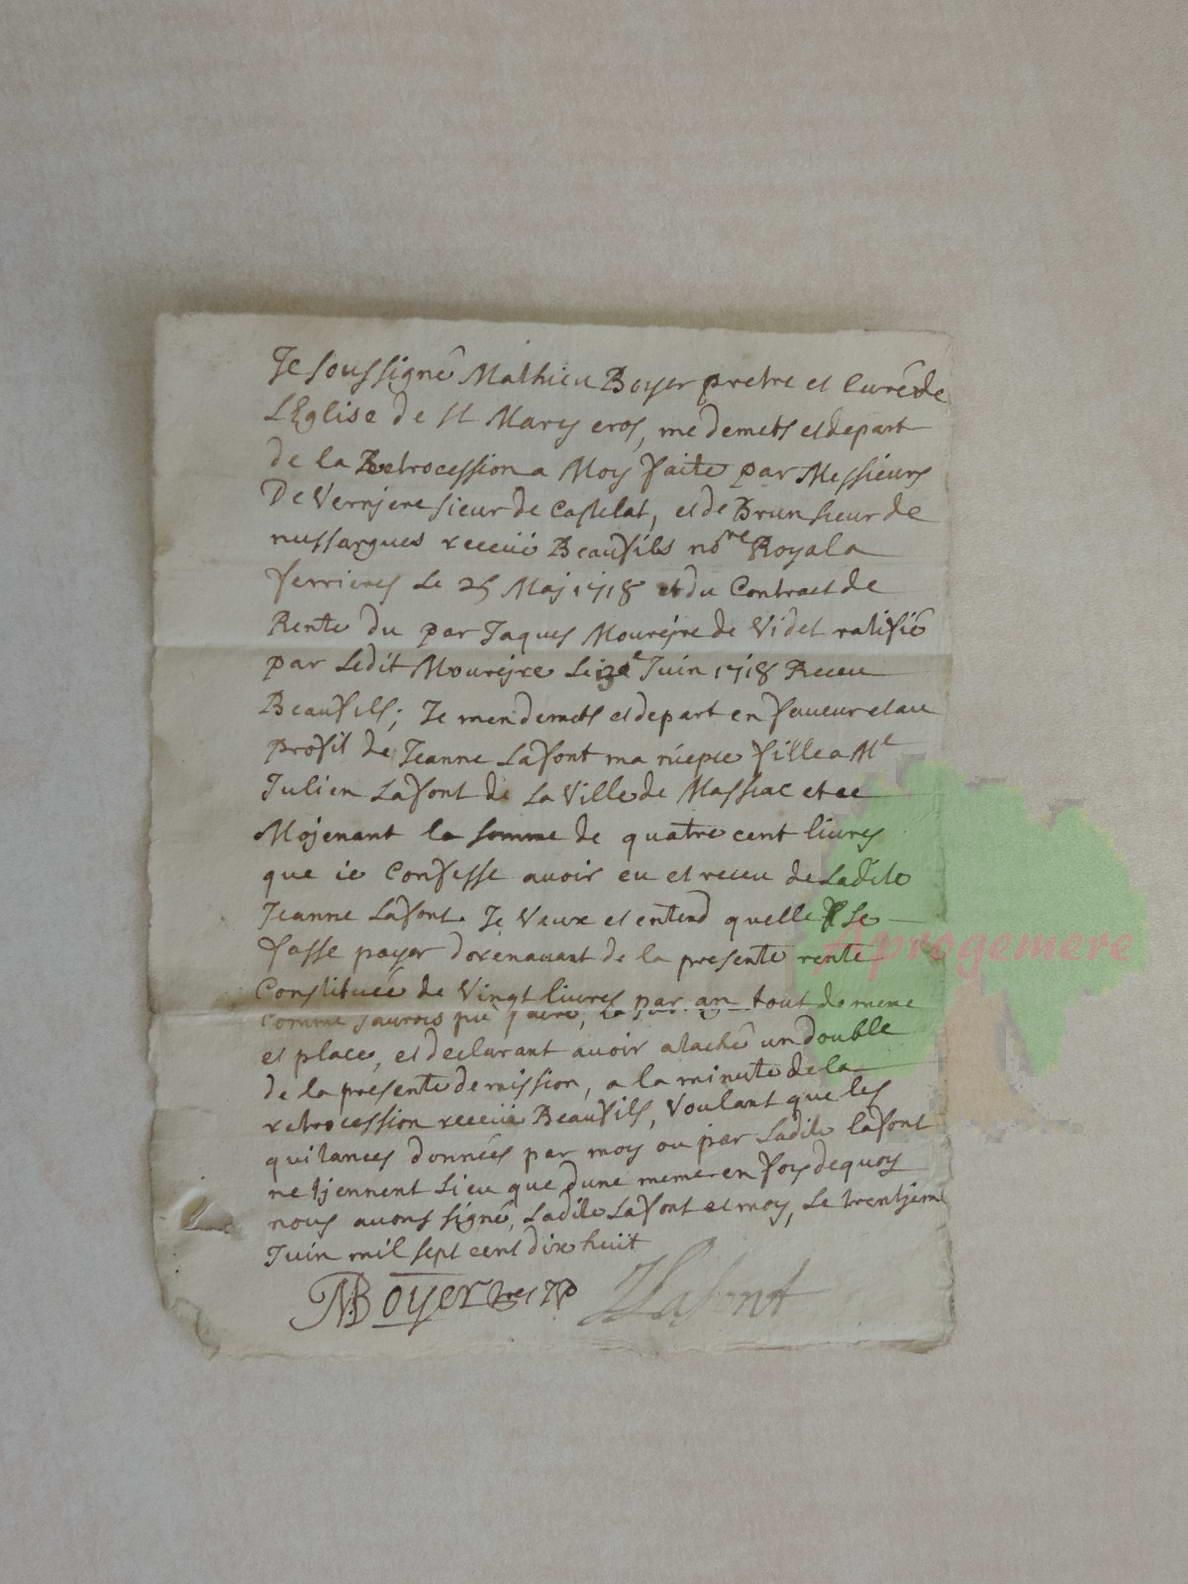 Je soussigné Mathieu Boyer pretre et Curé de
LEglise de St Mary eros, me demets et depart
de la Retrocession a Moy faite par Messieurs
De Verrjere sieur de Castelat, et de Brun sieur de
nussargues receüe Beaufils nore Royal a
ferrieres Le 25 Maj 1718 et du Contract de
Rente du par Jaques Mourejre de Videt ratifié
par Ledit Mourejre Le Juin 1718 Receu
Beaufils; Je men demets et depart en faveur et au
profit de Jeanne Lafont ma niepce fille a Me
Julien Lafont de La Ville de Massiac et ce
Mojenant la somme de quatre cent livres
que ie Confesse avoir eu et receu de Ladite
Jeanne Lafont. Je Veux et entend quelle se
fasse payer dorenavant de la presente rente
Constituée de Vingt livres par an tout de meme
Comme jaurois pu faire,
et place, et declarant avoir ataché un double
de la presente demission, a la minute de la
retrocession receüe Beaufils, Voulant que les
quitances données par moy ou par Ladite lafont
ne tjennent Lieu que dune meme en foy de quoy
nous avons signé, Ladite Lafont et moy, Le trentjeme
Juin mil sept cent dix huit
MBoyer
JLafont
Aprogemere